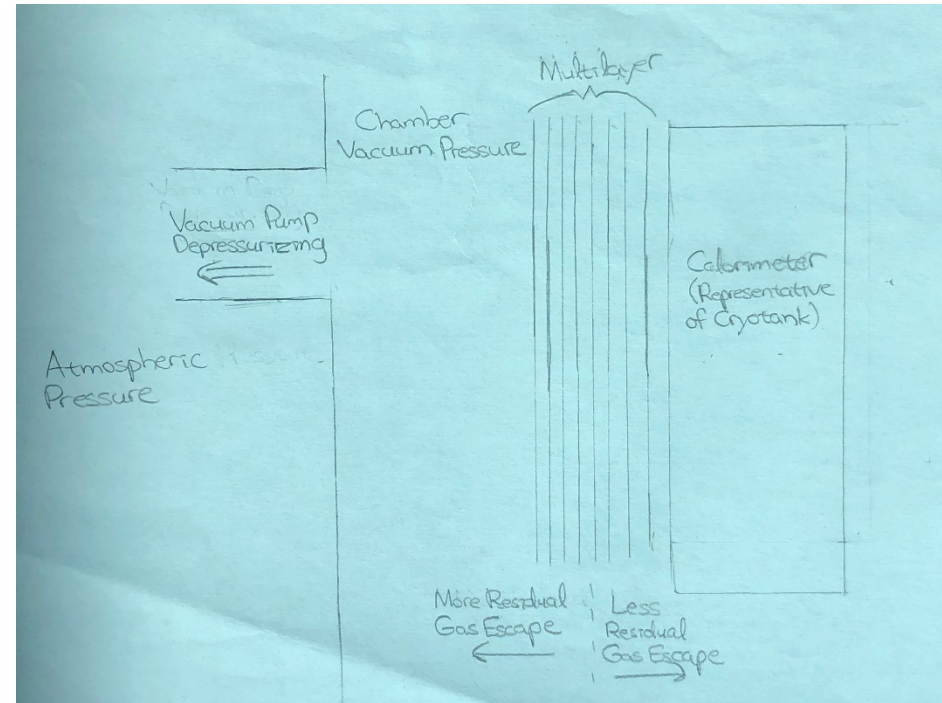 Multilayer
Chamber
Vacuum Pressure
Vacuum Pump
Depressurizing
Atmospheric
Pressure
Calorimeter
(Representative
of Cryotank)
More Residual
Gas Escape
Less
Residual
Gas Escape